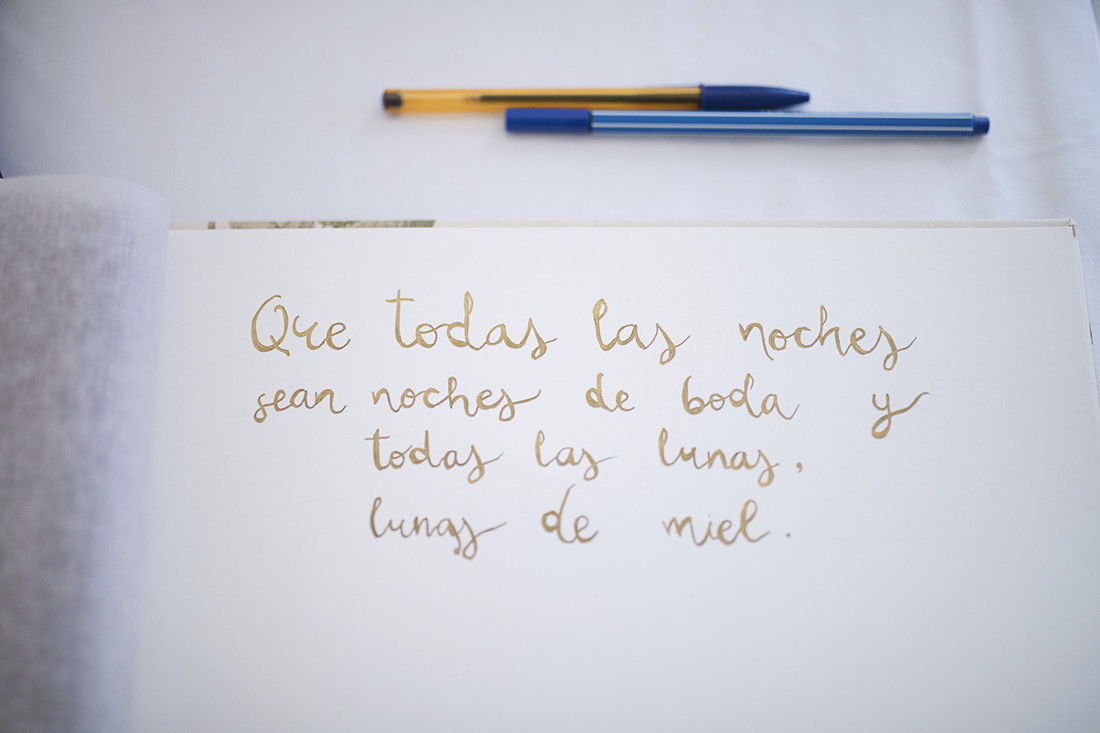 Que todas las noches
sean noches de boda y
todas las lunas,
lunas de miel.